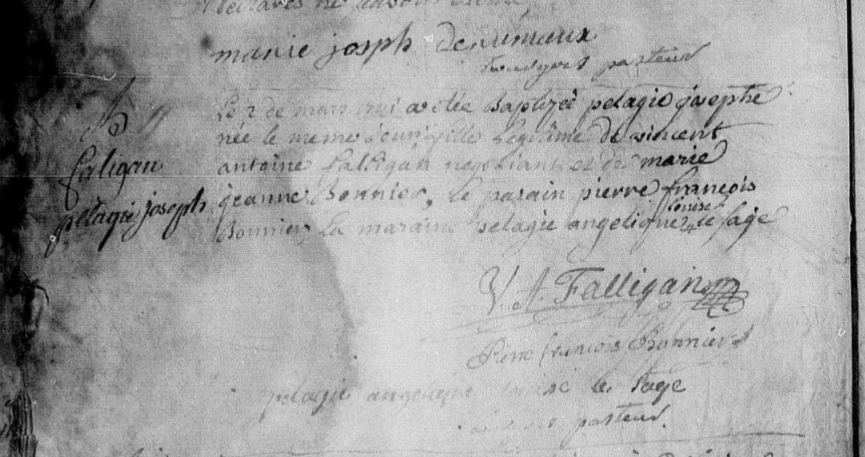 marie joseph denumeaux
pasteur
Le 2 de mars 1781 a etée Baptizée pelagie josephe
née le meme jour fille Legitime de vincent
antoine falligan negotiant et de marie
jeanne Bonnier, le parain pierre françois
louise
Bonnier, la maraine pelagie angelique le sage
faligan
pelagie joseph
V. A. Falligan
Pierre françois Bonnier
pelagie angelique louise le sage
pasteur.